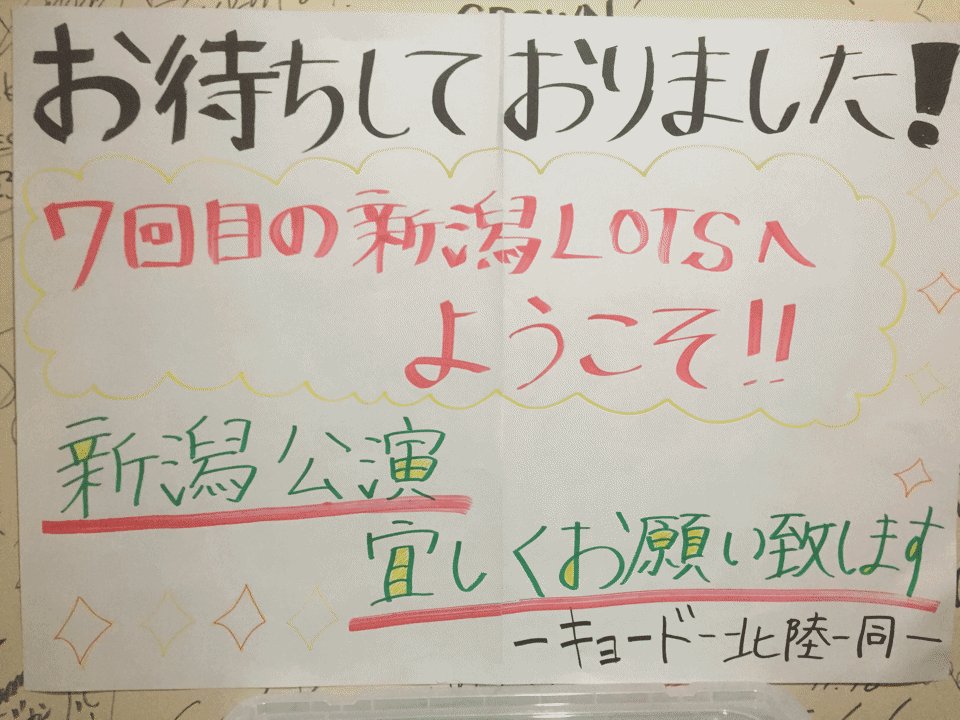 CROWN
お待ちしておりました!
7回目の新潟LOTSへ
ようこそ!!
新潟公演
宜しくお願い致します
ーキョードー北陸一同ー